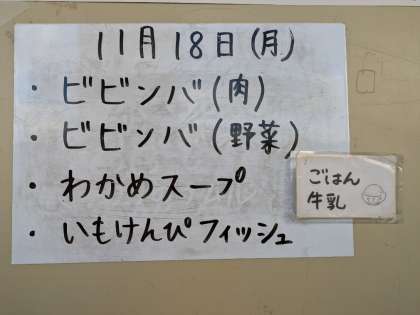 11月18日(月)
・ビビンバ(肉)
・ビビンバ(野菜)
・わかめスープ
・いもけんぴフィッシュ
ごはん
牛乳